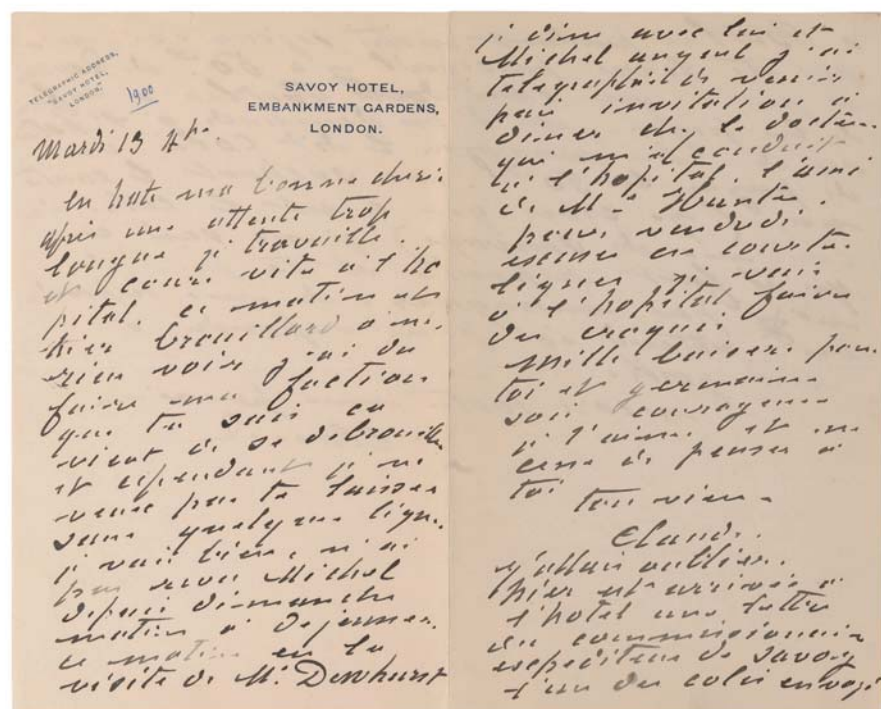 TELEGRAPHIC ADDRESS,
"SAVOY HOTEL,
LONDON."
1900
SAVOY HOTEL,
EMBANKMENT GARDENS,
LONDON.
Mardi 13 4h.
En hate ma bonne cherie
après une attente trop
longue je travaille
et cours vite à l'ho
pital. ce matin et
hier brouillard à ne
rien voir j'ai du
faire ma faction
que tu sais ca
vient de se debrouiller
et cependant je ne
veux pas te laisser
sans quelques lignes.
je vais bien, n'ai
pas revu Michel
depuis dimanche
matin à dejeuner.
ce matin eu la
visite de Mr. Dewhurst
je dine avec lui et
Michel auquel j'ai
telegraphié de venir
puis invitation à
diner chez le docteur
qui m'a conduit
à l'hopital, l'ami
de Me Hunter.
pour vendredi
excuse ces courtes
lignes je vais
à l'hopital faire
du croquis
Mille baisers pour
toi et germaine
sois courageuse
je t'aime et ne
cesse de penser à
toi
ton vieux
Claude.
j'allais oublier.
hier est arrivée à
l'hotel une lettre
du commissionnaire
expediteur de savoy
l'un des colis envoyé